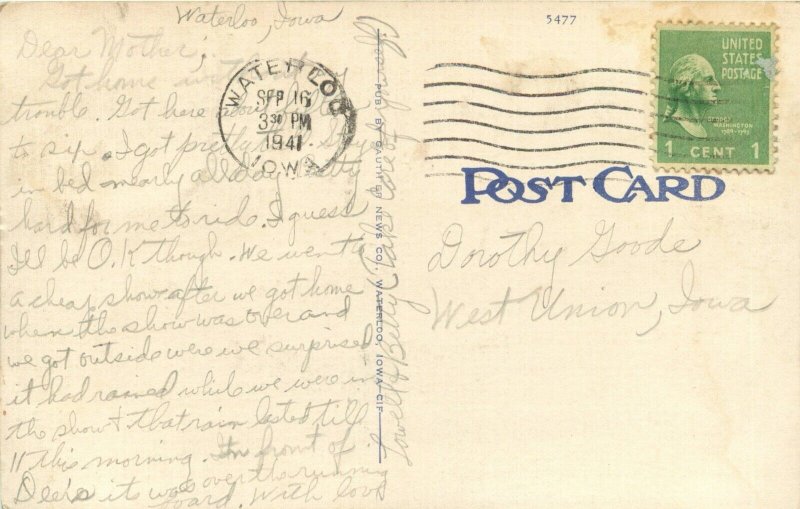 Waterloo, Iowa
Dear Mother;
Got home
trouble. Got here
to six. I got pretty
in bed nearly all day.
hard for me to ride. I guess
I'll be O.K though. We went to
a cheap show after we got home
when the show was over and
we got outside were we surprised
it had rained while we were in
the show & that rain lasted till
11 this morning. In front of
Dee's it was over the running
board. With love
Lowell & Betty Take care of yourself
WATERLOO
SEP 16
3 30 PM
1941
IOWA
PUB. BY NEWS CO., WATERLOO, IOWA-CIF
5477
UNITED
STATES
POSTAGE
GEORGE
WASHINGTON
1789-1797
1 CENT 1
POST CARD
Dorothy Goode
West Union, Iowa